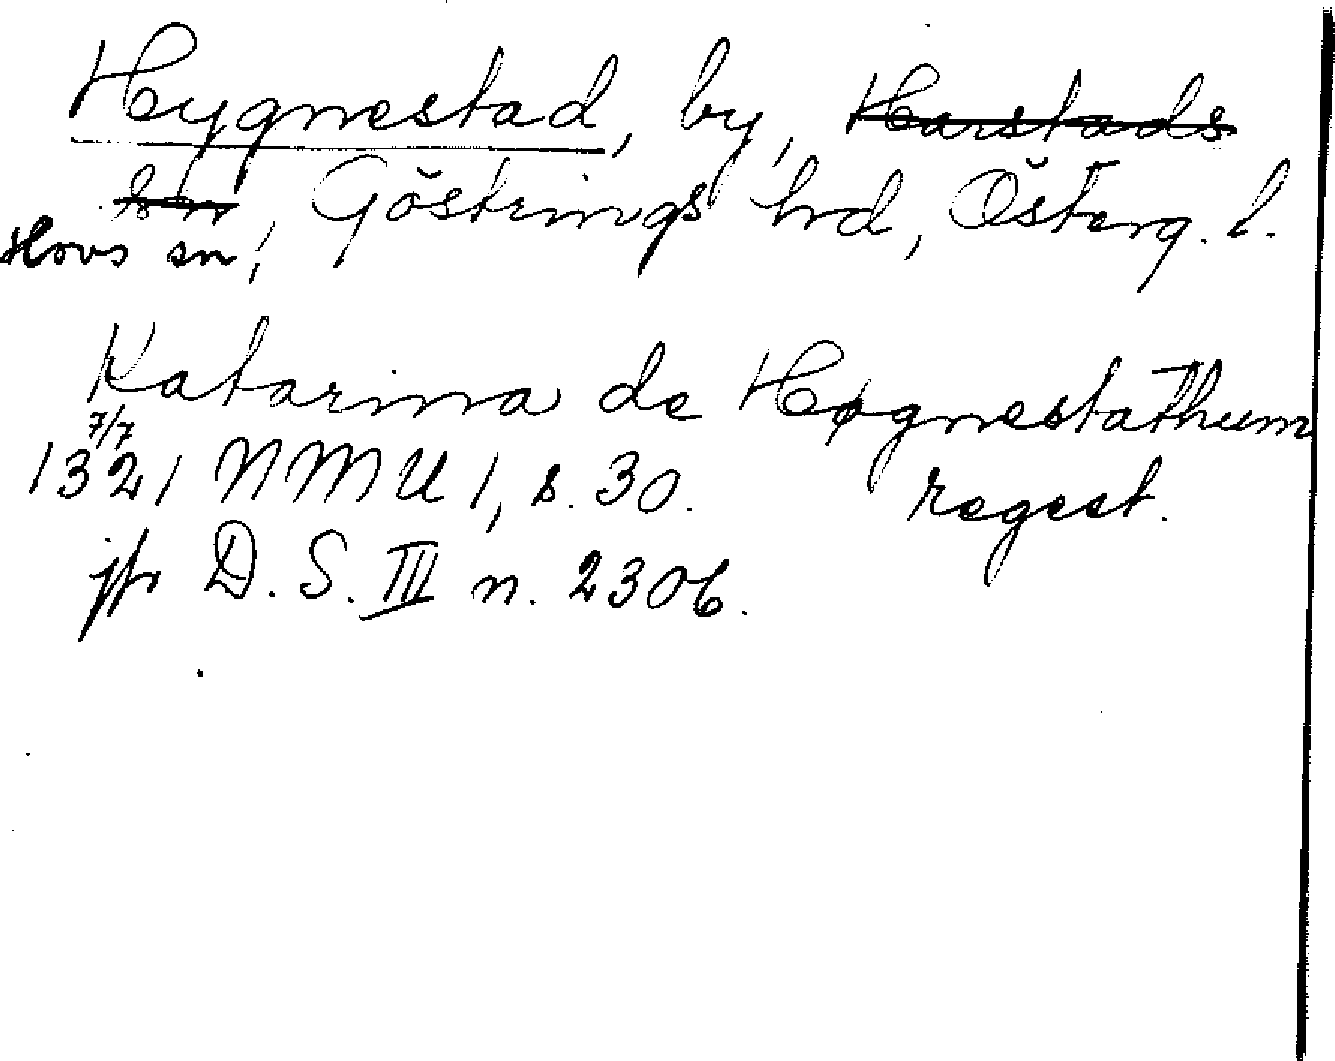 Hygnestad, by, Harstads
sn, Göstrings hd, Österg. l.
Hovs sn,
Katarina de Høgnestathum
7/7
1321 NMU 1, s. 30. regest.
jfr D. S. III n. 2306.